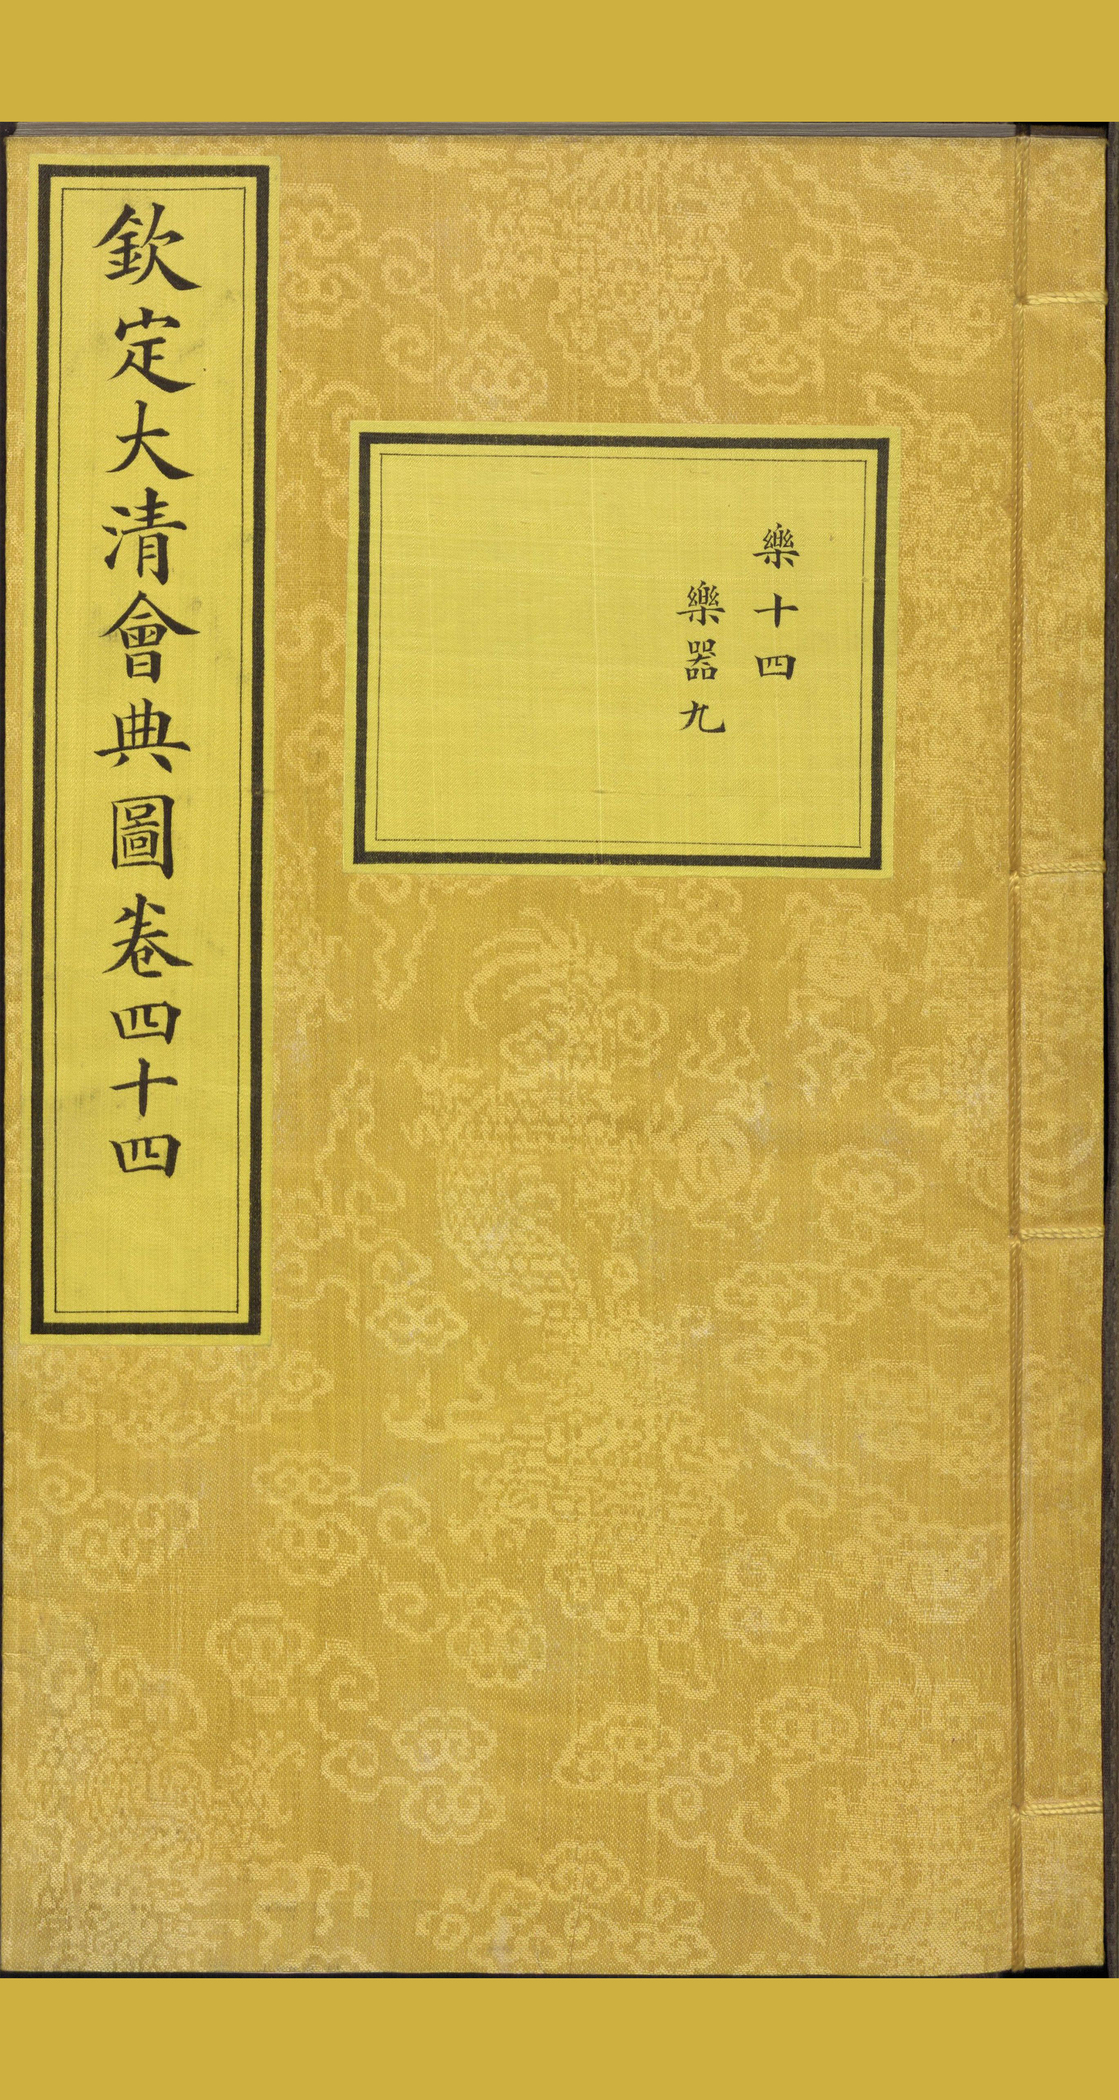 欽定大清會典圖卷四十四
樂十四
樂器九